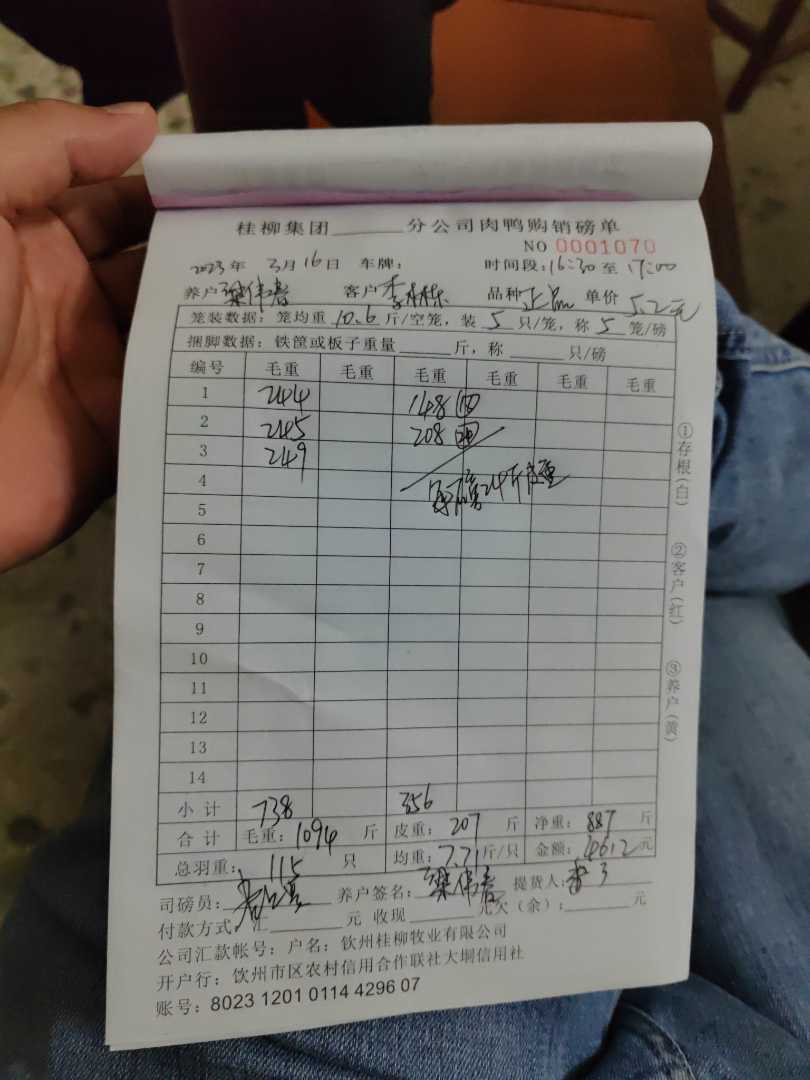 桂柳集团______分公司肉鸭购销磅单
NO 0001070
2023年 3月16日 车牌： 时间段：16:30至17:00
养户 梁伟春 客户 李林 品种 正品 单价 5.2元
笼装数据：笼均重 10.6 斤/空笼，装 5 只/笼，称 5 笼/磅
捆脚数据：铁筐或板子重量______斤，称______只/磅
编号 毛重 毛重 毛重 毛重 毛重 毛重
1 244 148
2 245 208
3 249
4 24斤
5
6
7
8
9
10
11
12
13
14
小计 738 356
合计 毛重：1094 斤 皮重：207 斤 净重：887 斤
总羽重：115 只 均重：7.71斤/只 金额：4612元
司磅员： 养户签名：梁伟春 提货人：李
付款方式：汇______元 收现______元欠（余）：______元
公司汇款帐号：户名：钦州桂柳牧业有限公司
开户行：钦州市区农村信用合作联社大垌信用社
账号：8023 1201 0114 4296 07
①存根(白)
②客户(红)
③养户(黄)